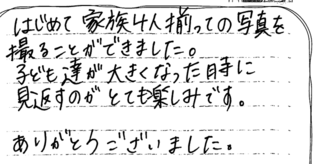 はじめて家族4人揃っての写真を
撮ることができました。
子ども達が大きくなった時に
見返すのがとても楽しみです。
ありがとうございました。